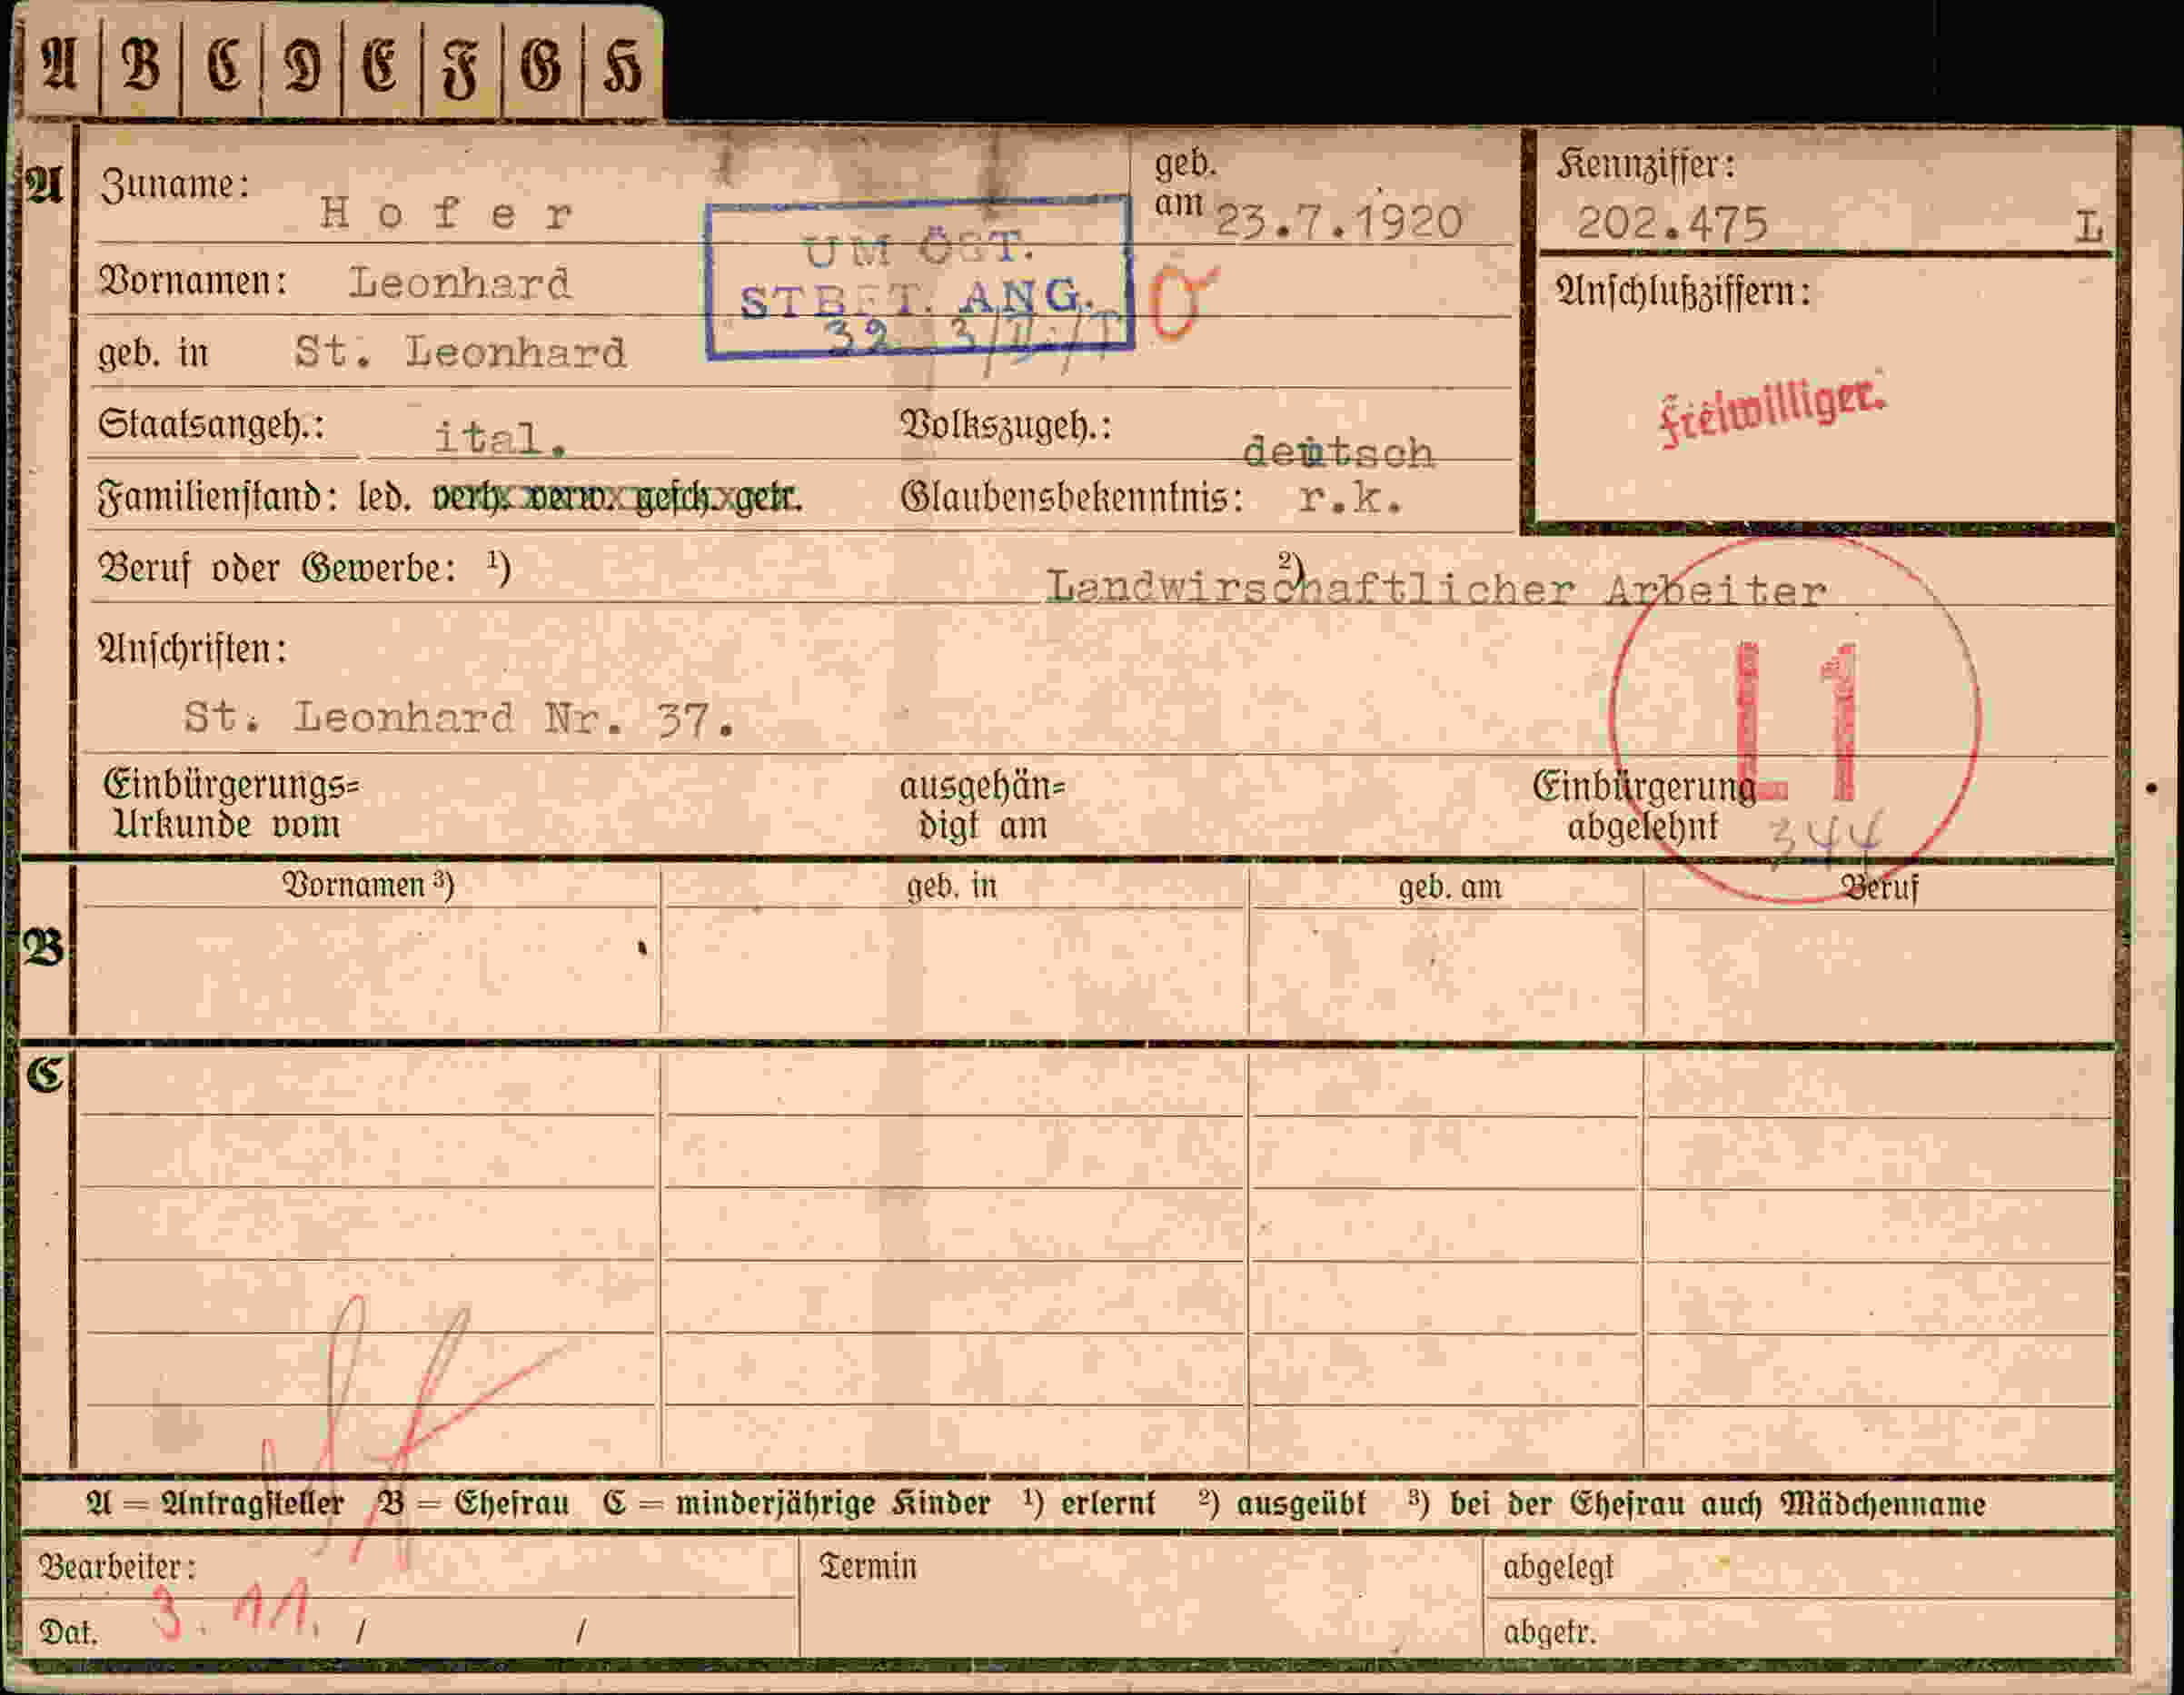 A B C D E F G H
A
Zuname: Hofer
geb. am 23.7.1920
Kennziffer:
202.475 L
UM ÖST.
STBET. ANG.
32
Vornamen: Leonhard
Anschlußziffern:
geb. in St. Leonhard
Freiwilliger.
Staatsangeh.: ital. Volkszugeh.: deutsch
Familienstand: led. verh. verw. gesch. getr. Glaubensbekenntnis: r.k.
Beruf oder Gewerbe: ¹) ²) Landwirschaftlicher Arbeiter
Anschriften:
L1
St. Leonhard Nr. 37.
Einbürgerungs=
Urkunde vom
ausgehän=
digt am
Einbürgerung
abgelehnt 344
B
Vornamen ³) geb. in geb. am Beruf
C
A = Antragsteller B = Ehefrau C = minderjährige Kinder ¹) erlernt ²) ausgeübt ³) bei der Ehefrau auch Mädchenname
Bearbeiter: Termin abgelegt
Dat. 3. 11. / / abgetr.